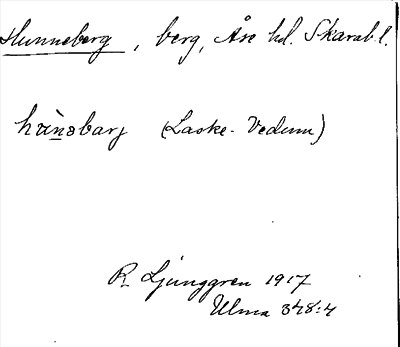 Hunneberg, berg, Åse hd. Skarab. l.
hùnəbarj (Laske-Vedum)
R. Ljunggren 1917
Ulma 348:4